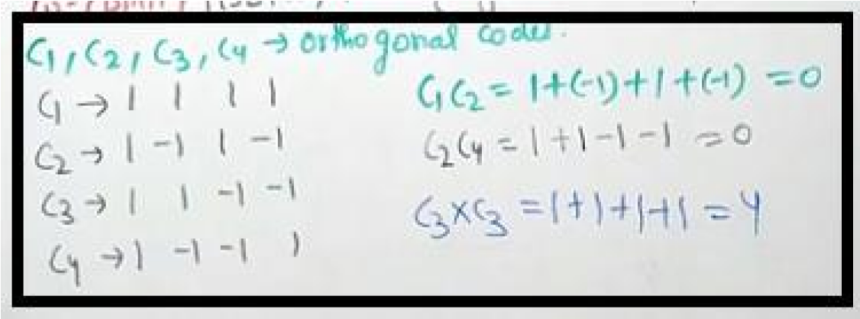 C1, C2, C3, C4 → orthogonal codes.
C1 → 1 1 1 1
C2 → 1 -1 1 -1
C3 → 1 1 -1 -1
C4 → 1 -1 -1 1
C1C2 = 1+(-1)+1+(-1) = 0
C2C4 = 1+1-1-1 = 0
C3×C3 = 1+1+1+1 = 4